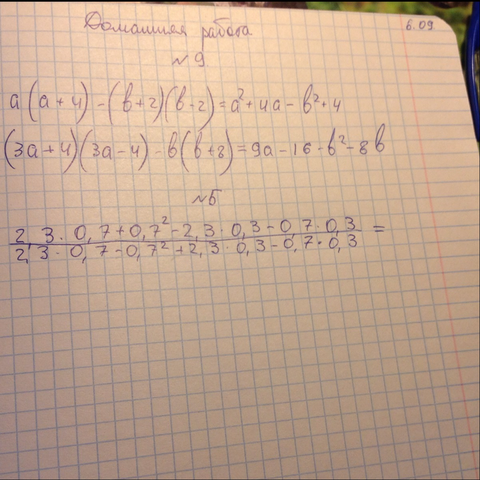 Домашняя работа 6.09
№ 9
a(a+4)-(b+2)(b-2)=a²+4a-b²+4
(3a+4)(3a-4)-b(b+8)=9a-16-b²-8b
№5
2,3·0,7+0,7²-2,3·0,3-0,7·0,3 =
2,3·0,7-0,7²+2,3·0,3-0,7·0,3